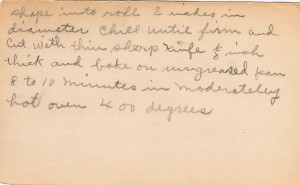 shape into roll 2 inches in
diameter chill until firm and
Cut with thin sharp knife ⅛ inch
thick and bake on ungreased pan
8 to 10 minutes in moderately
hot oven 400 degrees